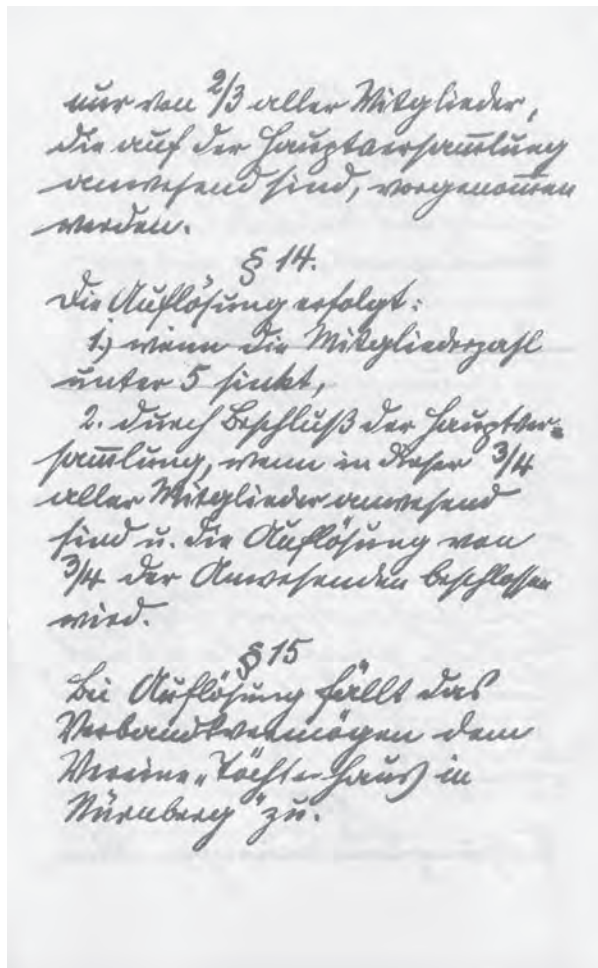 nur von 2/3 aller Mitglieder,
die auf der Hauptversam̅lung
anwesend sind, vorgenom̅en
werden.
§ 14.
Die Auflösung erfolgt:
1.) wenn die Mitgliederzahl
unter 5 sinkt,
2. durch Beschluß der Hauptver-
sam̅lung, wenn in dieser 3/4
aller Mitglieder anwesend
sind u. die Auflösung von
3/4 der Anwesenden beschlossen
wird.
§ 15
Bei Auflösung fällt das
Verbandsvermögen dem
Vereine „Töchterhaus in
Nürnberg" zu.